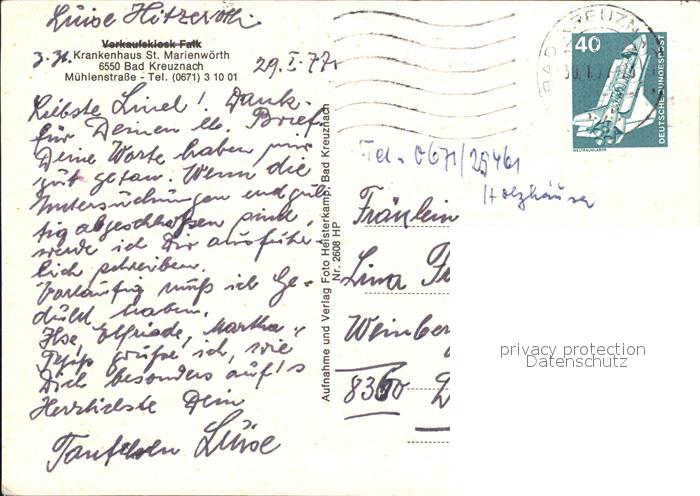 Luise Hitzeroth
Verkaufskiosk Falk
z. Zt. Krankenhaus St. Marienwörth
6550 Bad Kreuznach
Mühlenstraße - Tel. (0671) 3 10 01
29. I. 77.
Liebste Linel! Dank
für Deinen lb. Brief.
Deine Worte haben mir
gut getan. Wenn die
Untersuchungen endgül-
tig abgeschlossen sind,
werde ich Dir ausführ-
lich schreiben.
Vorläufig muß ich Ge-
duld haben.
Ilse, Elfriede, Martha u.
grüße ich, wie
Dich besonders auf's
Herzlichste Dein
Luise
Aufnahme und Verlag Foto Heisterkamp, Bad Kreuznach
Nr. 2608 HP
BAD KREUZN
40
DEUTSCHE BUNDESPOST
WELTRAUMLABOR
Tel. 0671/29461
Holzhäuser
Fräulein
Lina
Weinber
8360
privacy protection
Datenschutz